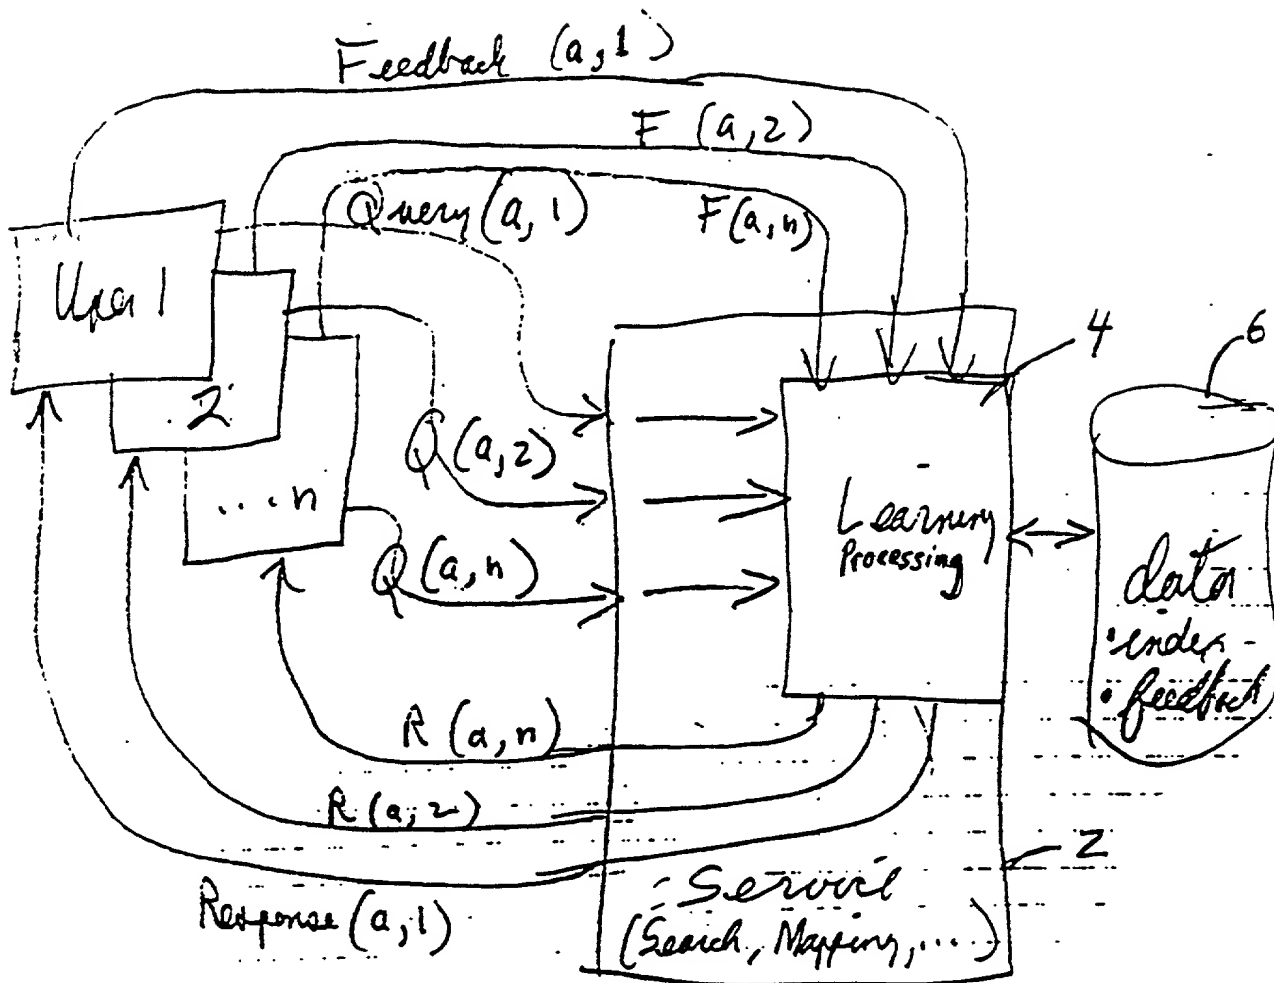 Feedback (a,1)
F (a,2)
Query (a,1)
F(a,n)
User 1
2
...n
Q (a,2)
Q (a,n)
4
6
Learning
Processing
data
• index
• feedback
R (a,n)
R (a,2)
Response (a,1)
2
Service
(Search, Mapping, ...)